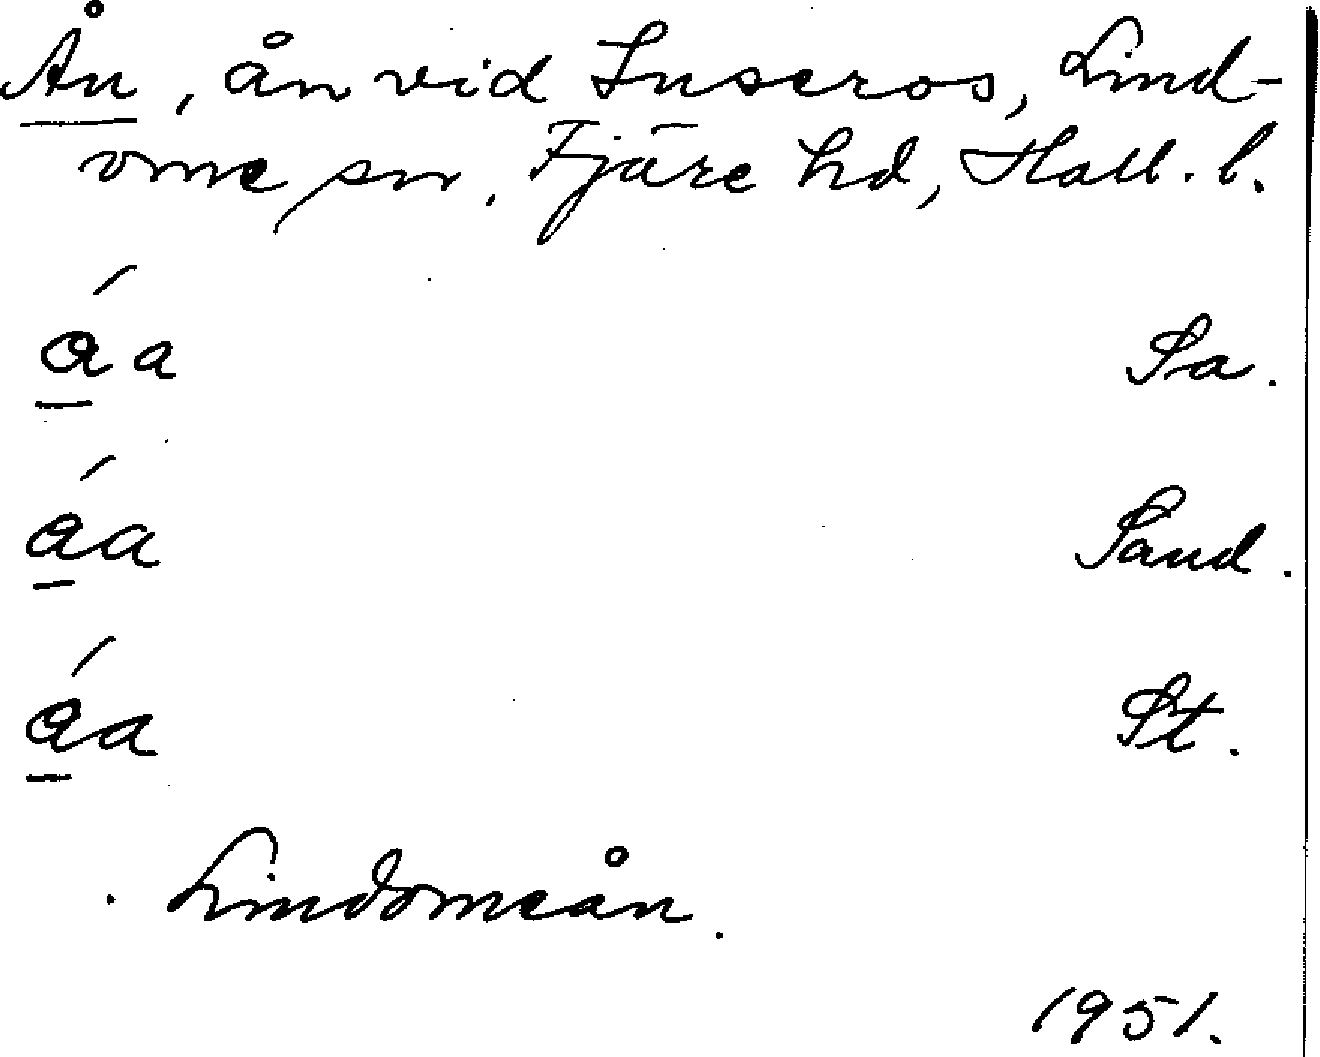 Ån, ån vid Inseros, Lind-
ome sn, Fjäre hd, Hall. l.
áa Sa.
áa Sand.
áa St.
Lindomeån.
1951.